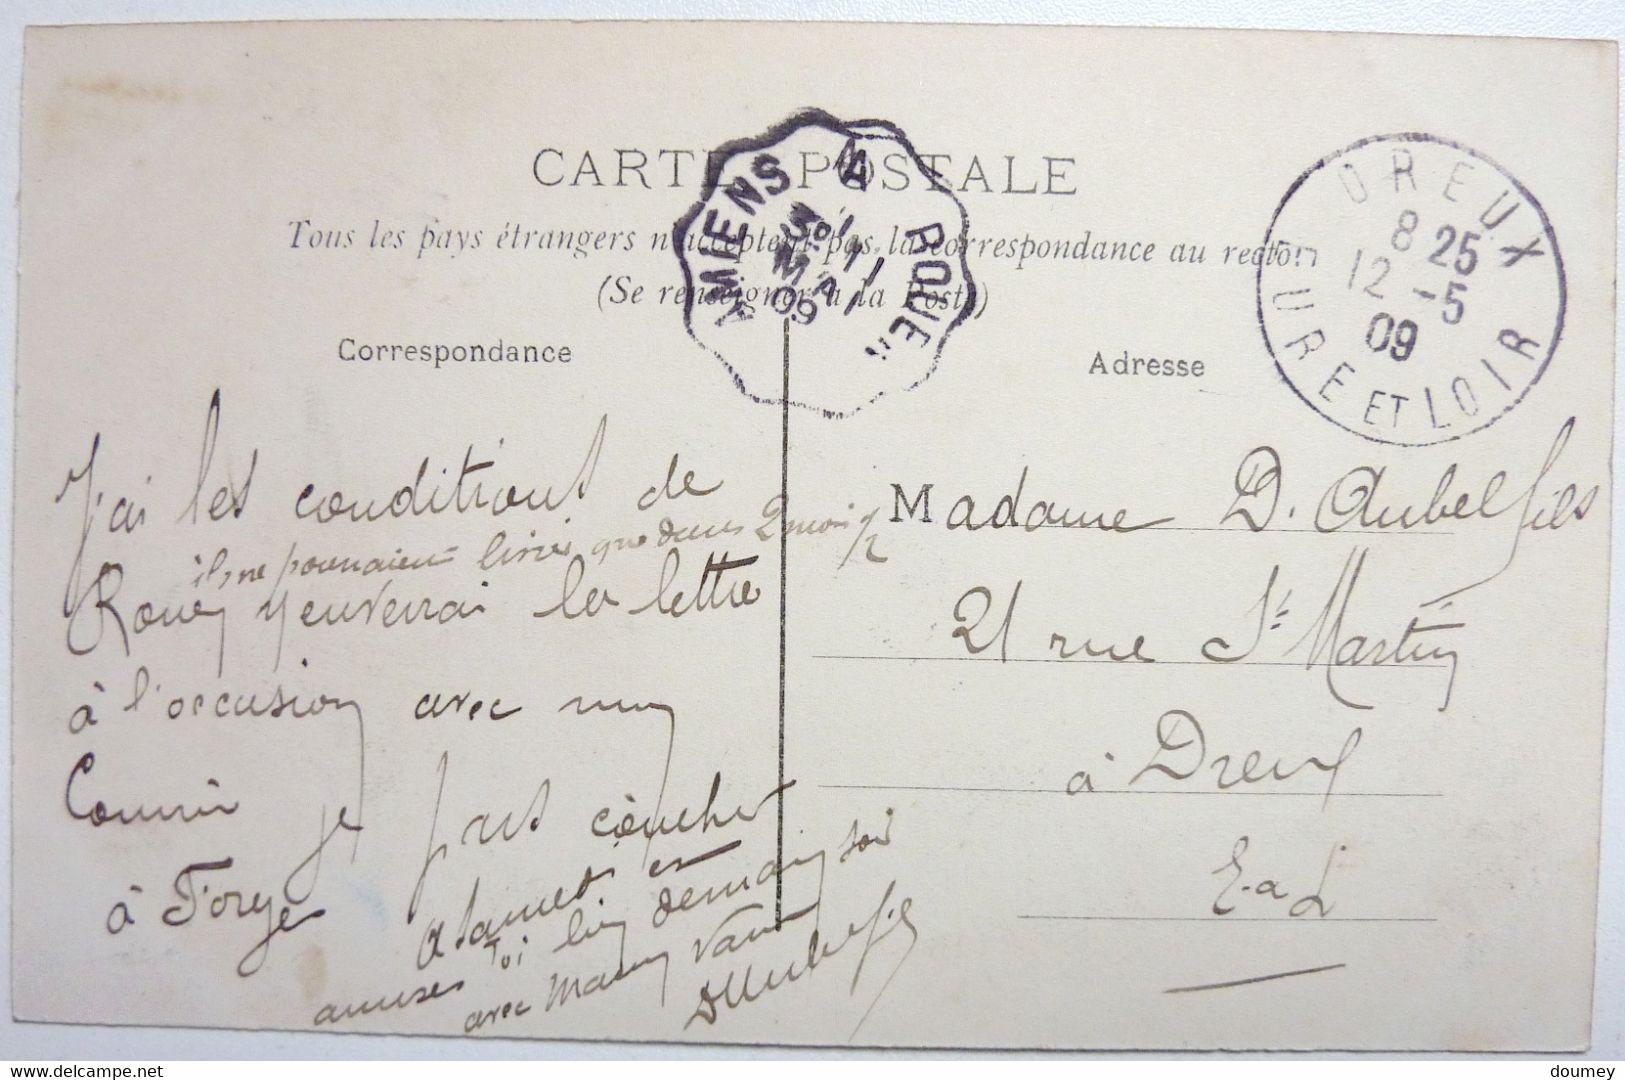 CARTE POSTALE
Tous les pays étrangers n'acceptent pas la correspondance au recto
(Se renseigner à la Poste)
AMIENS A ROUEN
11
MAI
09
DREUX
8 25
12 -5
09
EURE ET LOIR
Correspondance
Adresse
J'ai les conditions de
il, ne pourraient livrer que dans 2 mois 1/2
Rouen j'enverrai la lettre
à l'occasion avec mon
Courrier je pars coucher
à Forge
a samedi
amuses Toi bien demain soir
avec Maman
D Aubel fils
Madame D. Aubel fils
21 rue St Martin
à Dreux
E. a L
delcampe.net
doumey